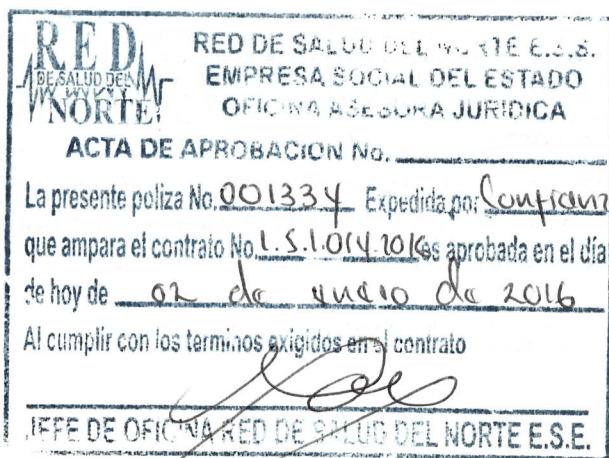 RED
DE SALUD DEL
NORTE
RED DE SALUD DEL NORTE E.S.E.
EMPRESA SOCIAL DEL ESTADO
OFICINA ASESORA JURIDICA
ACTA DE APROBACION No.
La presente poliza No. 001334 Expedida por Confianz
que ampara el contrato No. 1.S.1.014.2016 es aprobada en el día
de hoy de 02 de enero de 2016
Al cumplir con los terminos exigidos en el contrato
JEFE DE OFICINA RED DE SALUD DEL NORTE E.S.E.